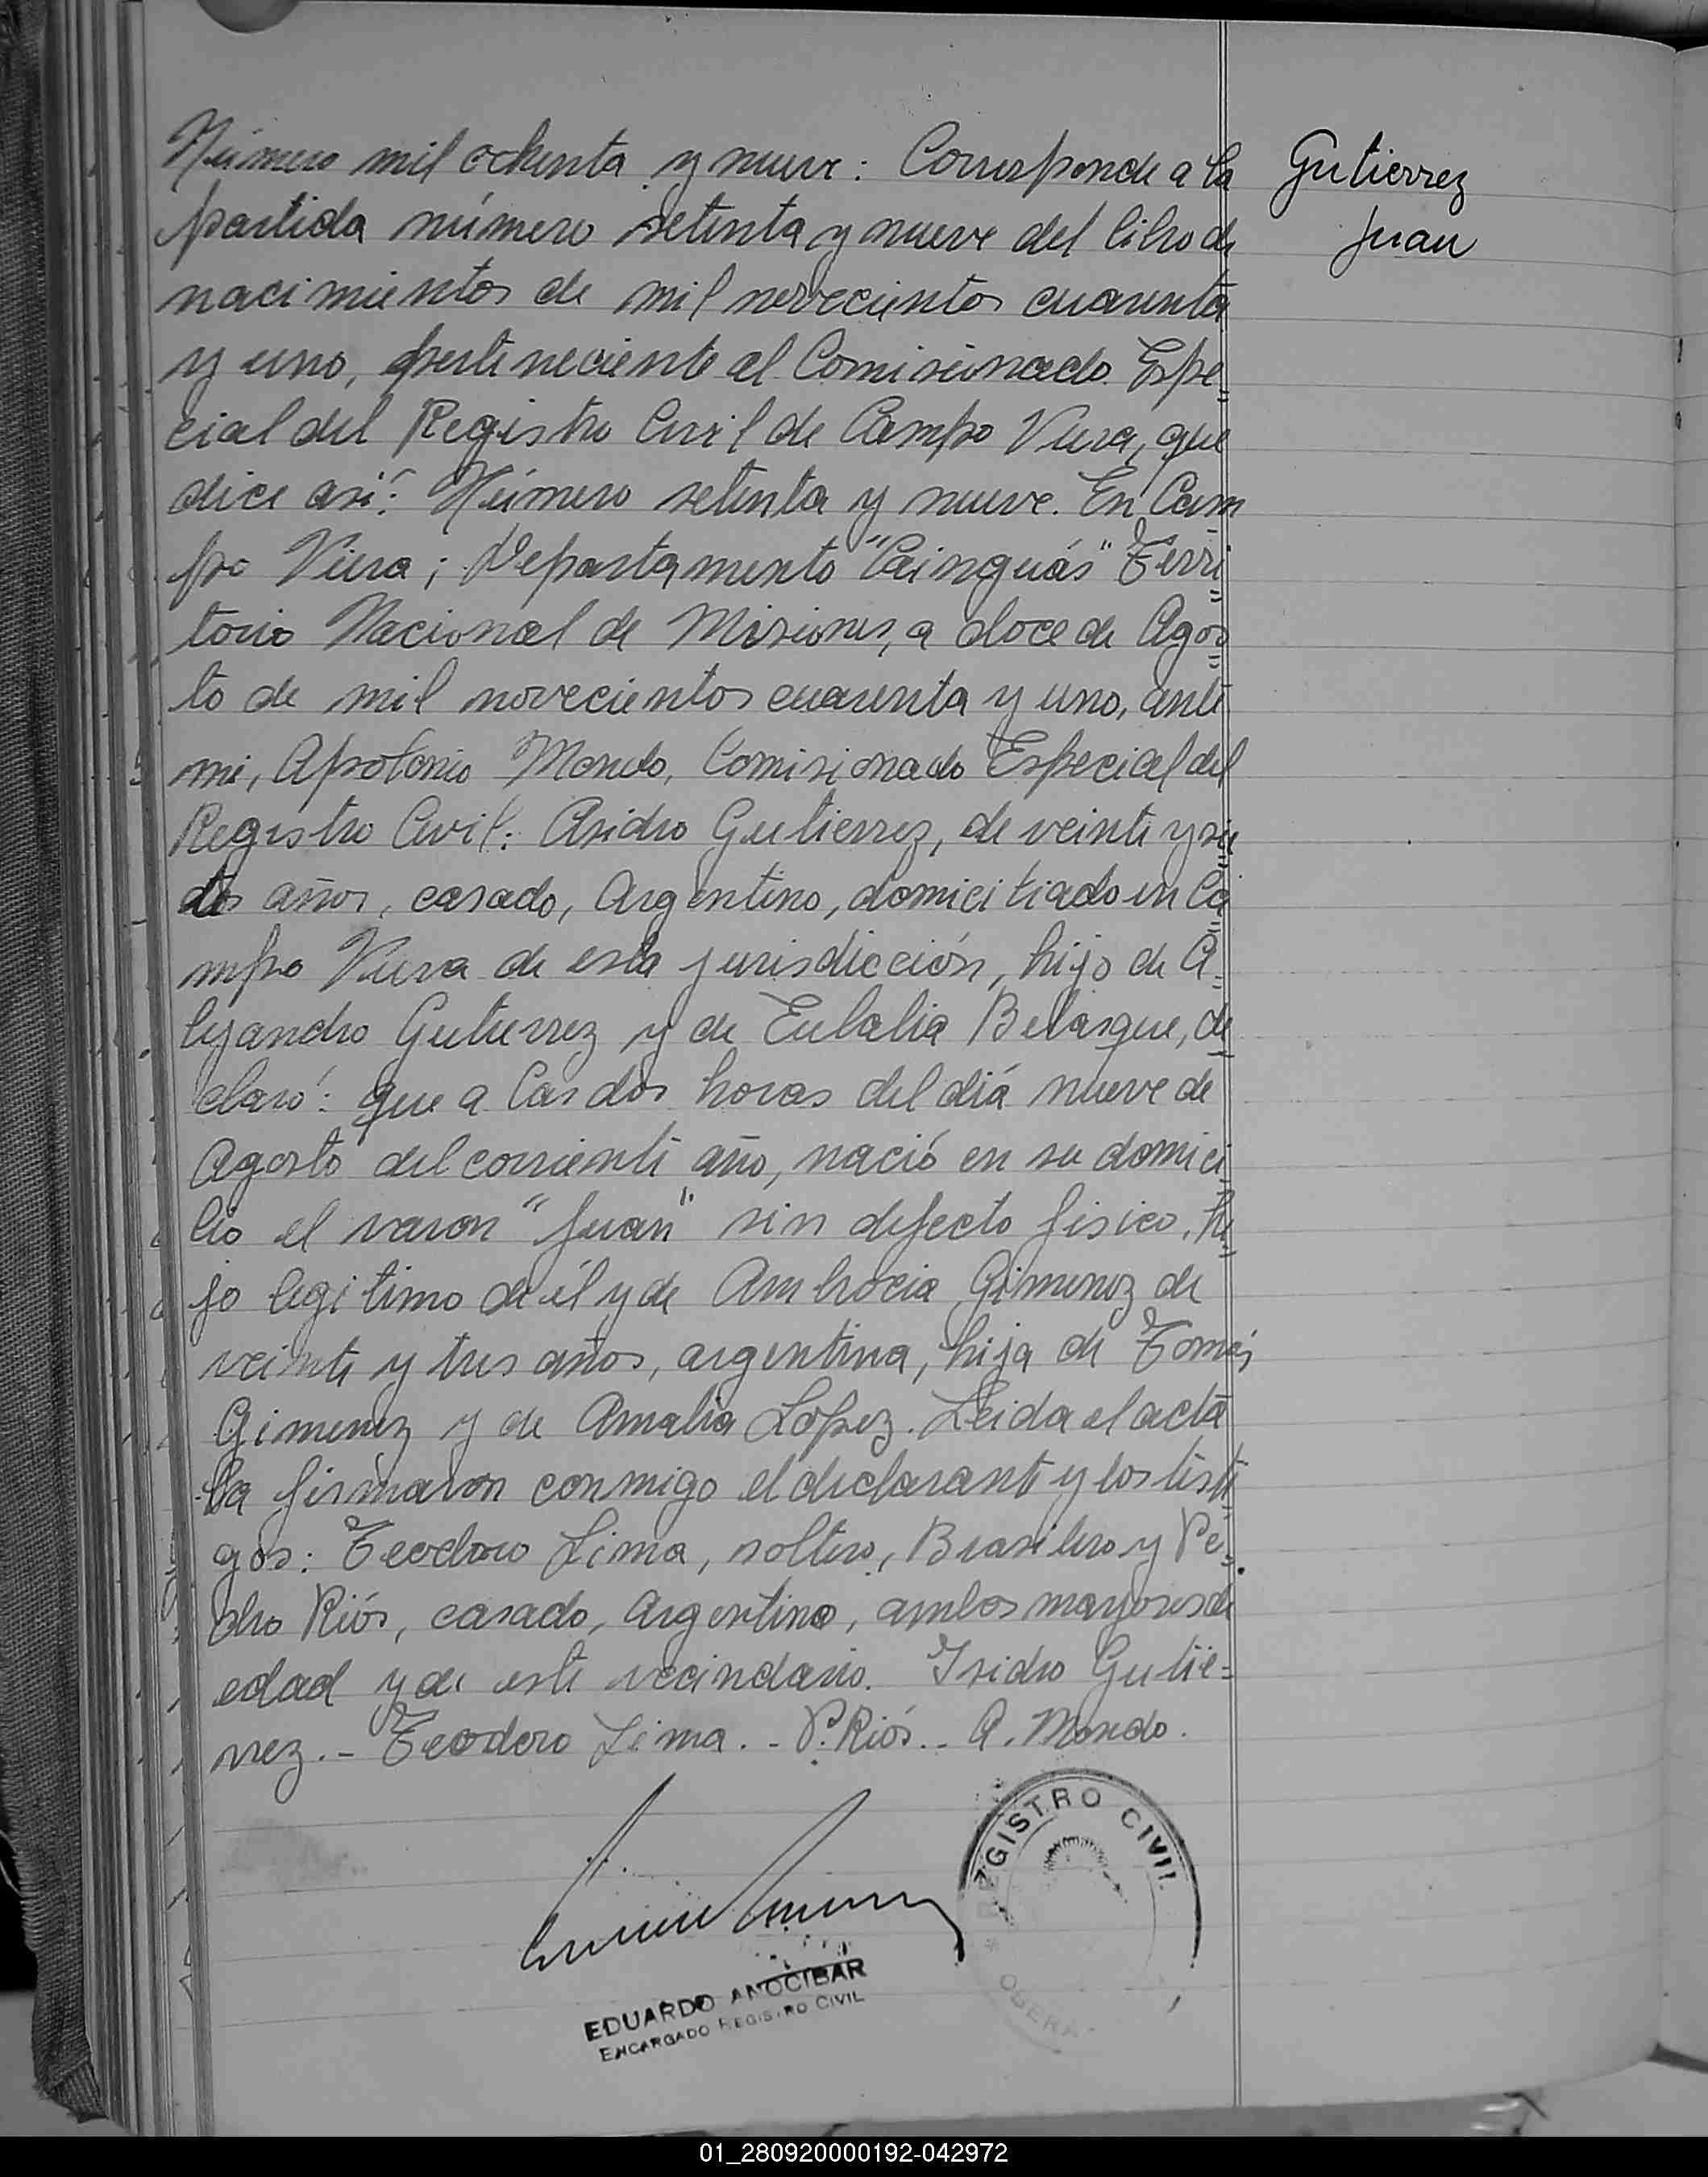 Número mil ochenta y nueve: Corresponde a la
partida número setenta y nueve del libro de
nacimientos de mil novecientos cuarenta
y uno, perteneciente al Comisionado Espe=
cial del Registro Civil de Campo Viera, que
dice así: Número setenta y nueve. En Cam
po Viera; Departamento "Cainguás" Terri=
torio Nacional de Misiones, a doce de Agos=
to de mil novecientos cuarenta y uno, ante
mi, Apolonio Mondo, Comisionado Especial del
Registro Civil: Asidro Gutierrez, de veinte y sie
años, casado, Argentino, domiciliado en Ca=
mpo Viera de esta jurisdicción, hijo de A=
lejandro Gutierrez y de Eulalia Belasque, de
claró: que a las dos horas del diá nueve de
Agosto del corriente año, nació en su domici
lio el varon "Juan" sin defecto fisico, hi=
jo legitimo de él y de Ambrocia Gimenez de
veinte y tres años, argentina, hija de Tomás
Gimenez y de Amalia Lopez. Leida el acta
la firmaron conmigo el declarante y los testi
gos: Teodoro Lima, soltero, Brasilero y Pe=
dro Riós, casado, Argentino, ambos mayores de
edad y de este vecindario. Isidro Gutie=
rrez.- Teodoro Lima.- P. Riós.- A. Mondo.
Gutierrez
Juan
REGISTRO CIVIL
OBERA
EDUARDO ANOCIBAR
ENCARGADO REGISTRO CIVIL
01_280920000192-042972